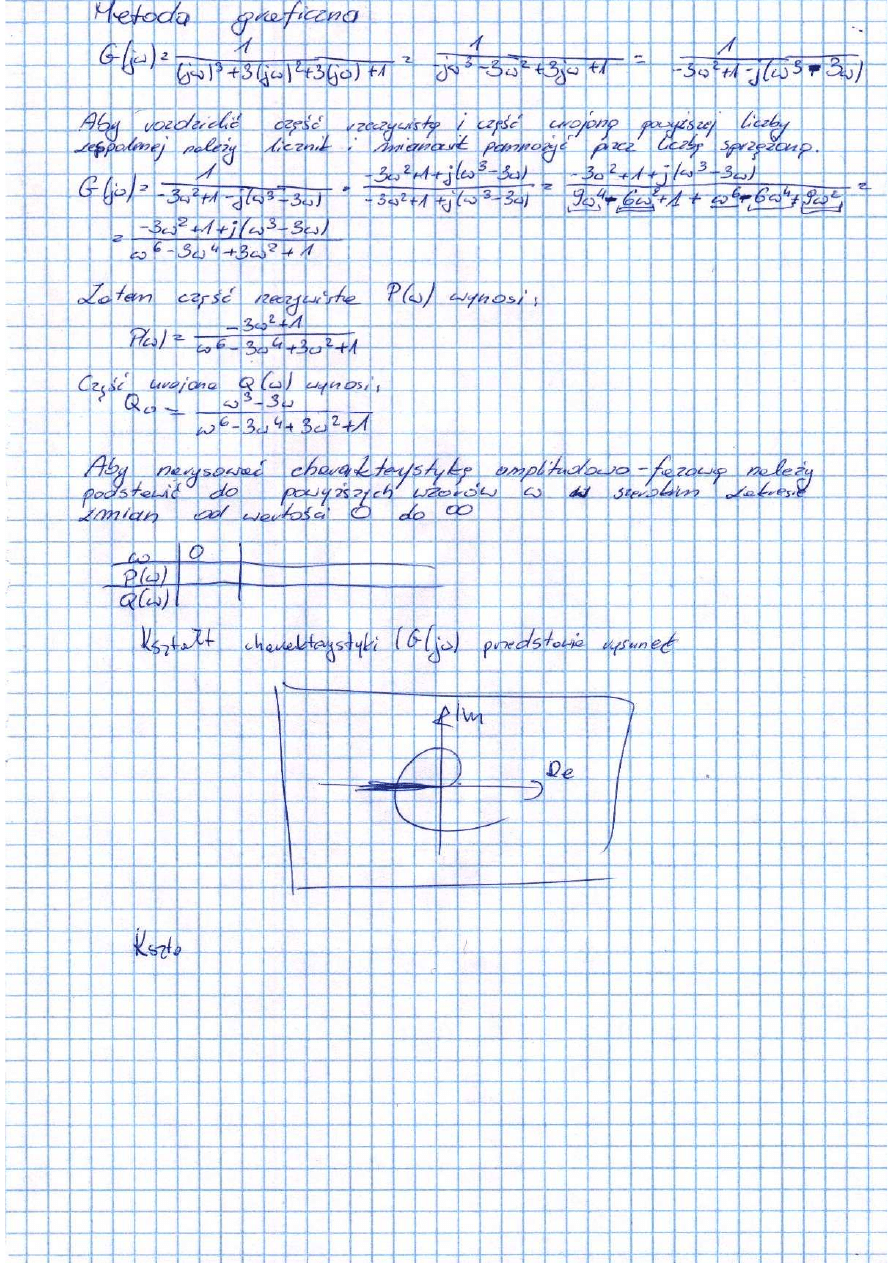 Metoda graficzna
G(jω) = 1 / ((jω)³+3(jω)²+3(jω)+1) = 1 / (-jω³-3ω²+3jω+1) = 1 / (-3ω²+1-j(ω³-3ω))
Aby rozdzielić część rzeczywistą i część urojoną powyższej liczby
zespolonej należy licznik i mianownik pomnożyć przez liczbę sprzężoną.
G(jω) = 1 / (-3ω²+1-j(ω³-3ω)) · (-3ω²+1+j(ω³-3ω)) / (-3ω²+1+j(ω³-3ω)) = (-3ω²+1+j(ω³-3ω)) / (9ω⁴-6ω²+1+ω⁶-6ω⁴+9ω²) =
= (-3ω²+1+j(ω³-3ω)) / (ω⁶-3ω⁴+3ω²+1)
Zatem część rzeczywista P(ω) wynosi:
P(ω) = (-3ω²+1) / (ω⁶-3ω⁴+3ω²+1)
Część urojona Q(ω) wynosi:
Qω = (ω³-3ω) / (ω⁶-3ω⁴+3ω²+1)
Aby narysować charakterystykę amplitudowo-fazową należy
podstawić do powyższych wzorów ω w szerokim zakresie
zmian od wartości 0 do ∞
ω 0
P(ω)
Q(ω)
Kształt charakterystyki (G(jω) przedstawia rysunek
Im
Re
Kszta